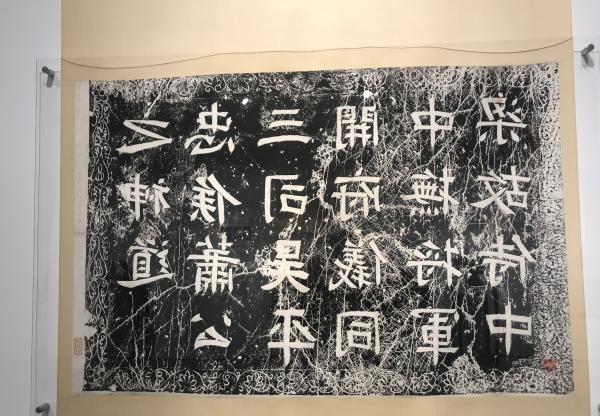 梁故侍中
中撫將軍
開府儀同
三司吳平
忠侯蕭公
之神道